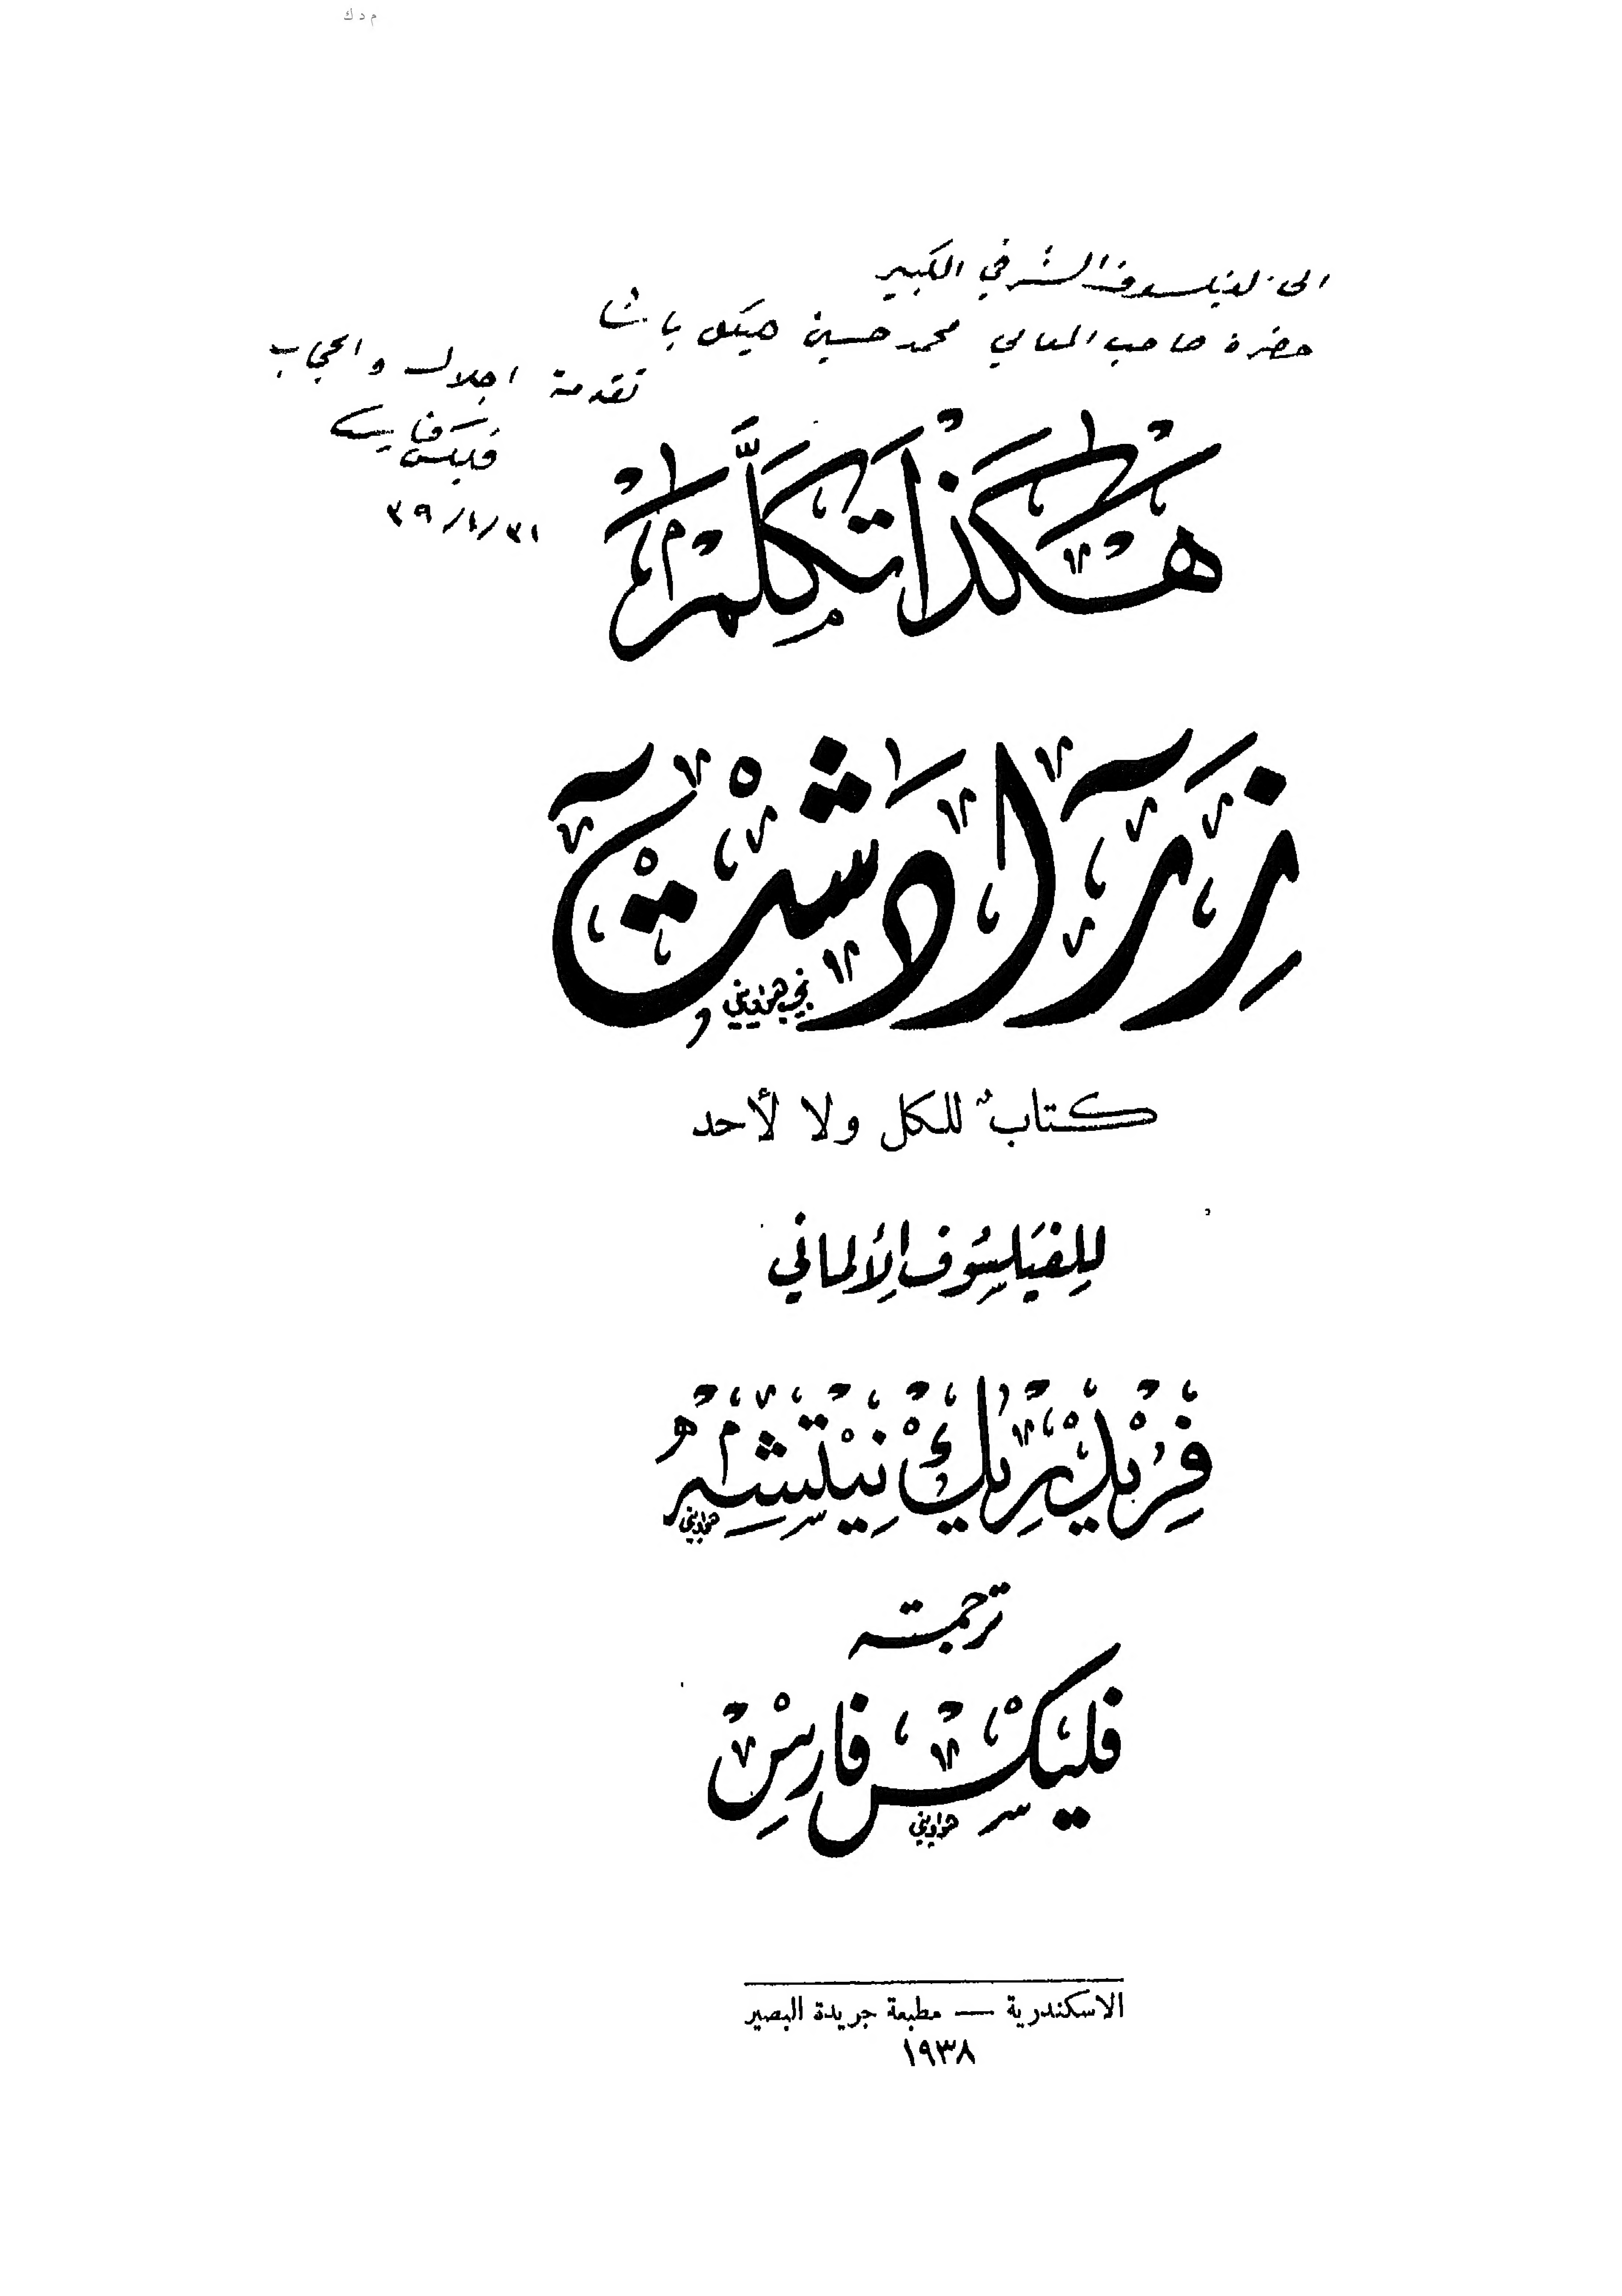 م د ك
الى الفيلسوف الشرقي الكبير
حضرة صاحب المعالي محمد حسين هيكل باشا
تقدمة اجلال واعجاب
فليكس فارس
٣١/١/٣٩
هكذا تكلَّم
زِرَآدَشْت
نجيب هواويني
كتابٌ للكل ولا لأحد
لِلفيَلسُوف الأِلماني
فِرِيْدْرِيك نِيْتشِه
هواويني
ترجمة
فليكس فارس
هواويني
الاسكندرية — مطبعة جريدة البصير
١٩٣٨